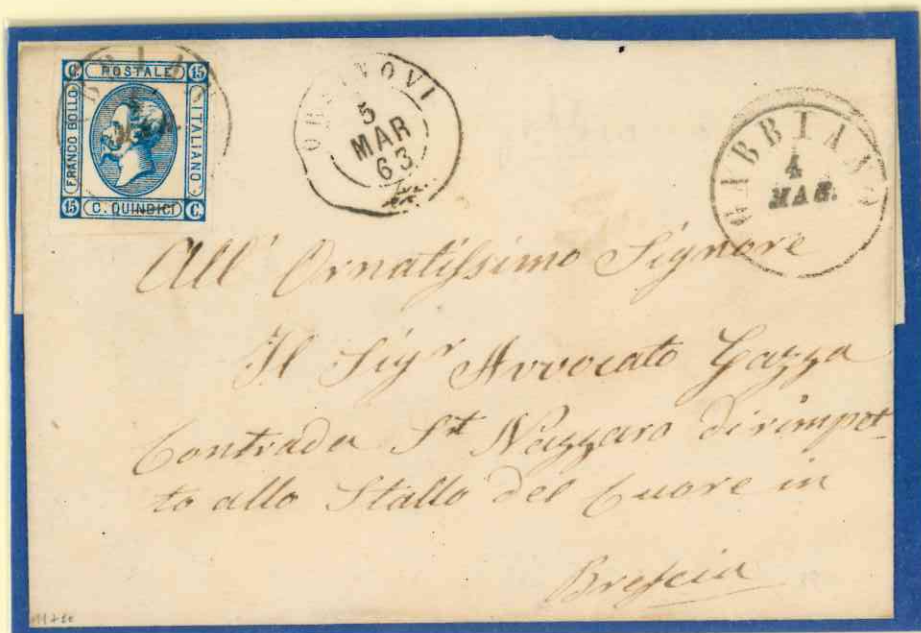 C. POSTALE 15
FRANCO BOLLO
ITALIANO
15 C. QUINDICI C.
ORZINOVI
5
MAR
63
GABBIANO
4
MAR.
All' Ornatissimo Signore
Il Sigr Avvocato Gazza
Contrada St Nazzaro dirimpet-
to allo Stallo del Cuore in
Brescia